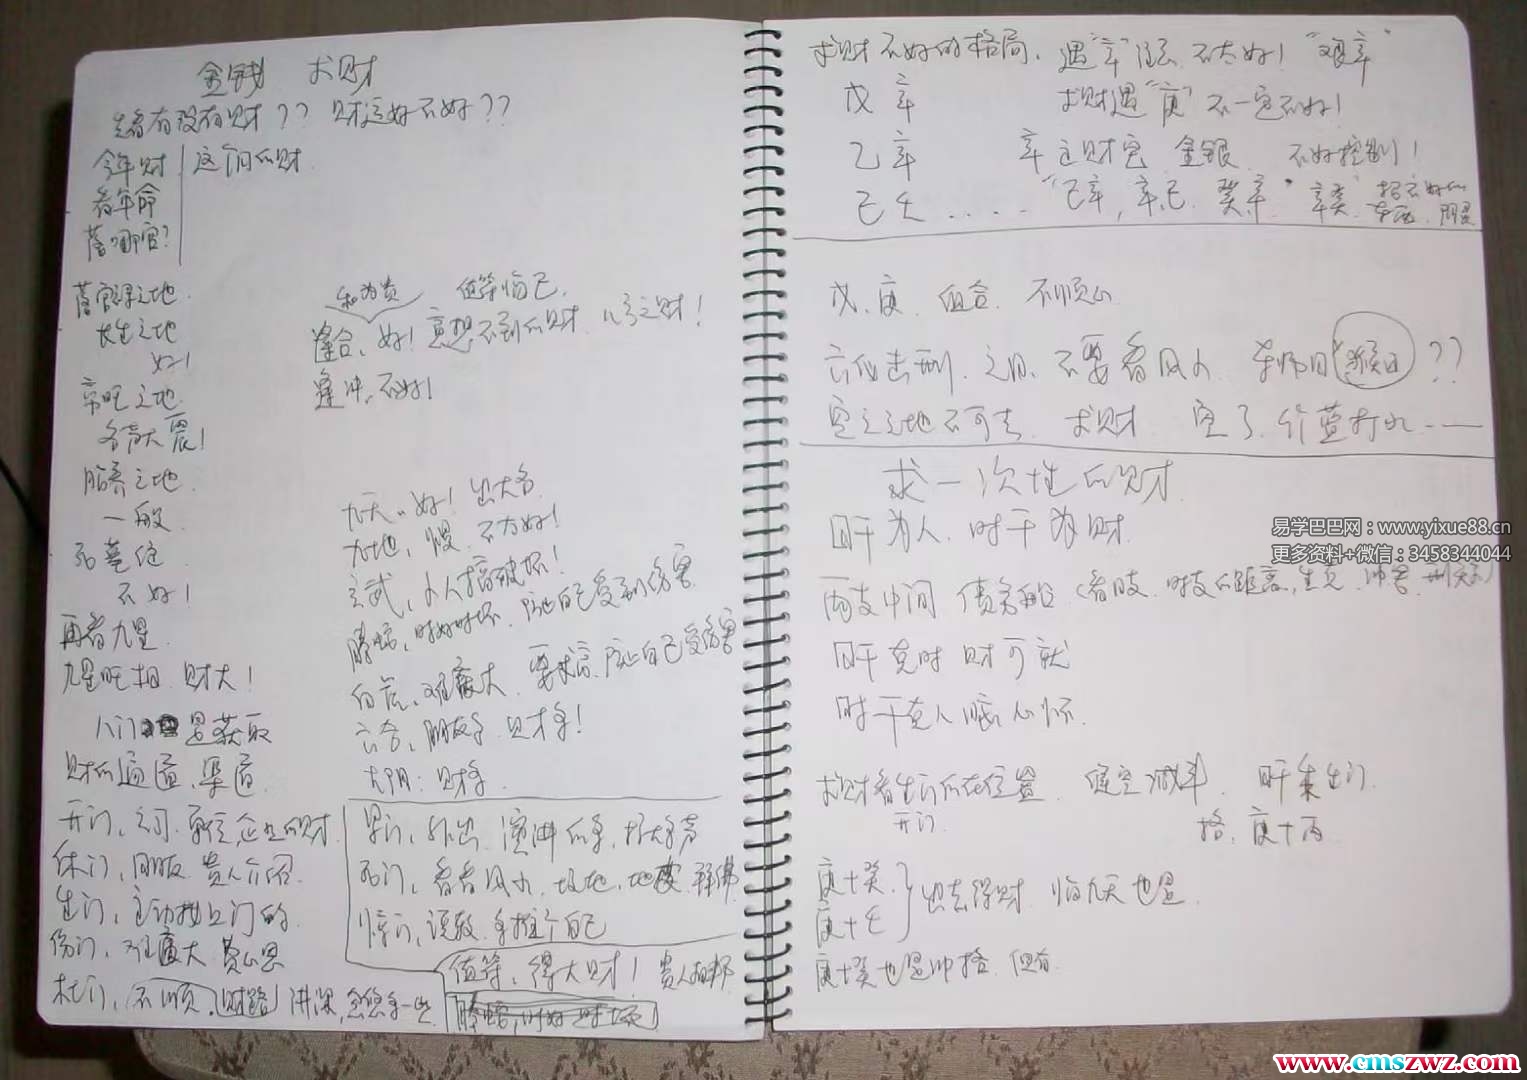 金钱 求财
先看有没有财?? 财运好不好??
今年财 这个月的财
看年命
落?哪宫?
落宫禄之地
长生之地
好!
帝旺之地
名声大震!
胎养之地
一般
死墓绝
不好!
再看九星
九星旺相 财大!
八门 是获取
财的通道、渠道
开门、公司、企业的财
休门、朋友 贵人介绍
生门、主动找上门的
伤门、难度大 费心思
杜门、不顺、财路
和为贵 值符临己
逢合、好! 意想不到的财
逢冲、不好!
九天、好! 出大名
九地、慢、不太好!
玄武、小人搞破坏!
腾蛇、时好时坏、自己受到伤害
白虎、难度大、自己受伤害
六合、朋友多 财多!
太阴:财多
景门、外出、演讲的多
死门、看看风水、坟地、地皮
惊门、说教、多推介自己
值符、得大财! 贵人相帮
求财不好的格局、遇"辛" 不太好! "艰辛"
戊 辛 求财遇"庚"不一定不好!
乙 辛 辛 财宝 金银 不好控制!
"己辛, 辛己. 癸辛" 辛癸
戊、庚 组合 不顺心
六仪击刑 之日 不要看风水 ??
空亡之地不可去 求财 空了、竹蓝打水 ——
求一次性的财
日干为人 时干为财
两支中间 (看日支、时支的距离,生克、冲害
日干克时 财可就
时干克人
求财看生门所在位置 逢空减半 日干乘生门
开门 格、庚+丙
庚+癸
出去得财 临九天也是
庚+壬
庚+癸也是冲格
易学巴巴网:www.yixue88.cn
更多资料+微信:3458344044
www.cmszwz.com